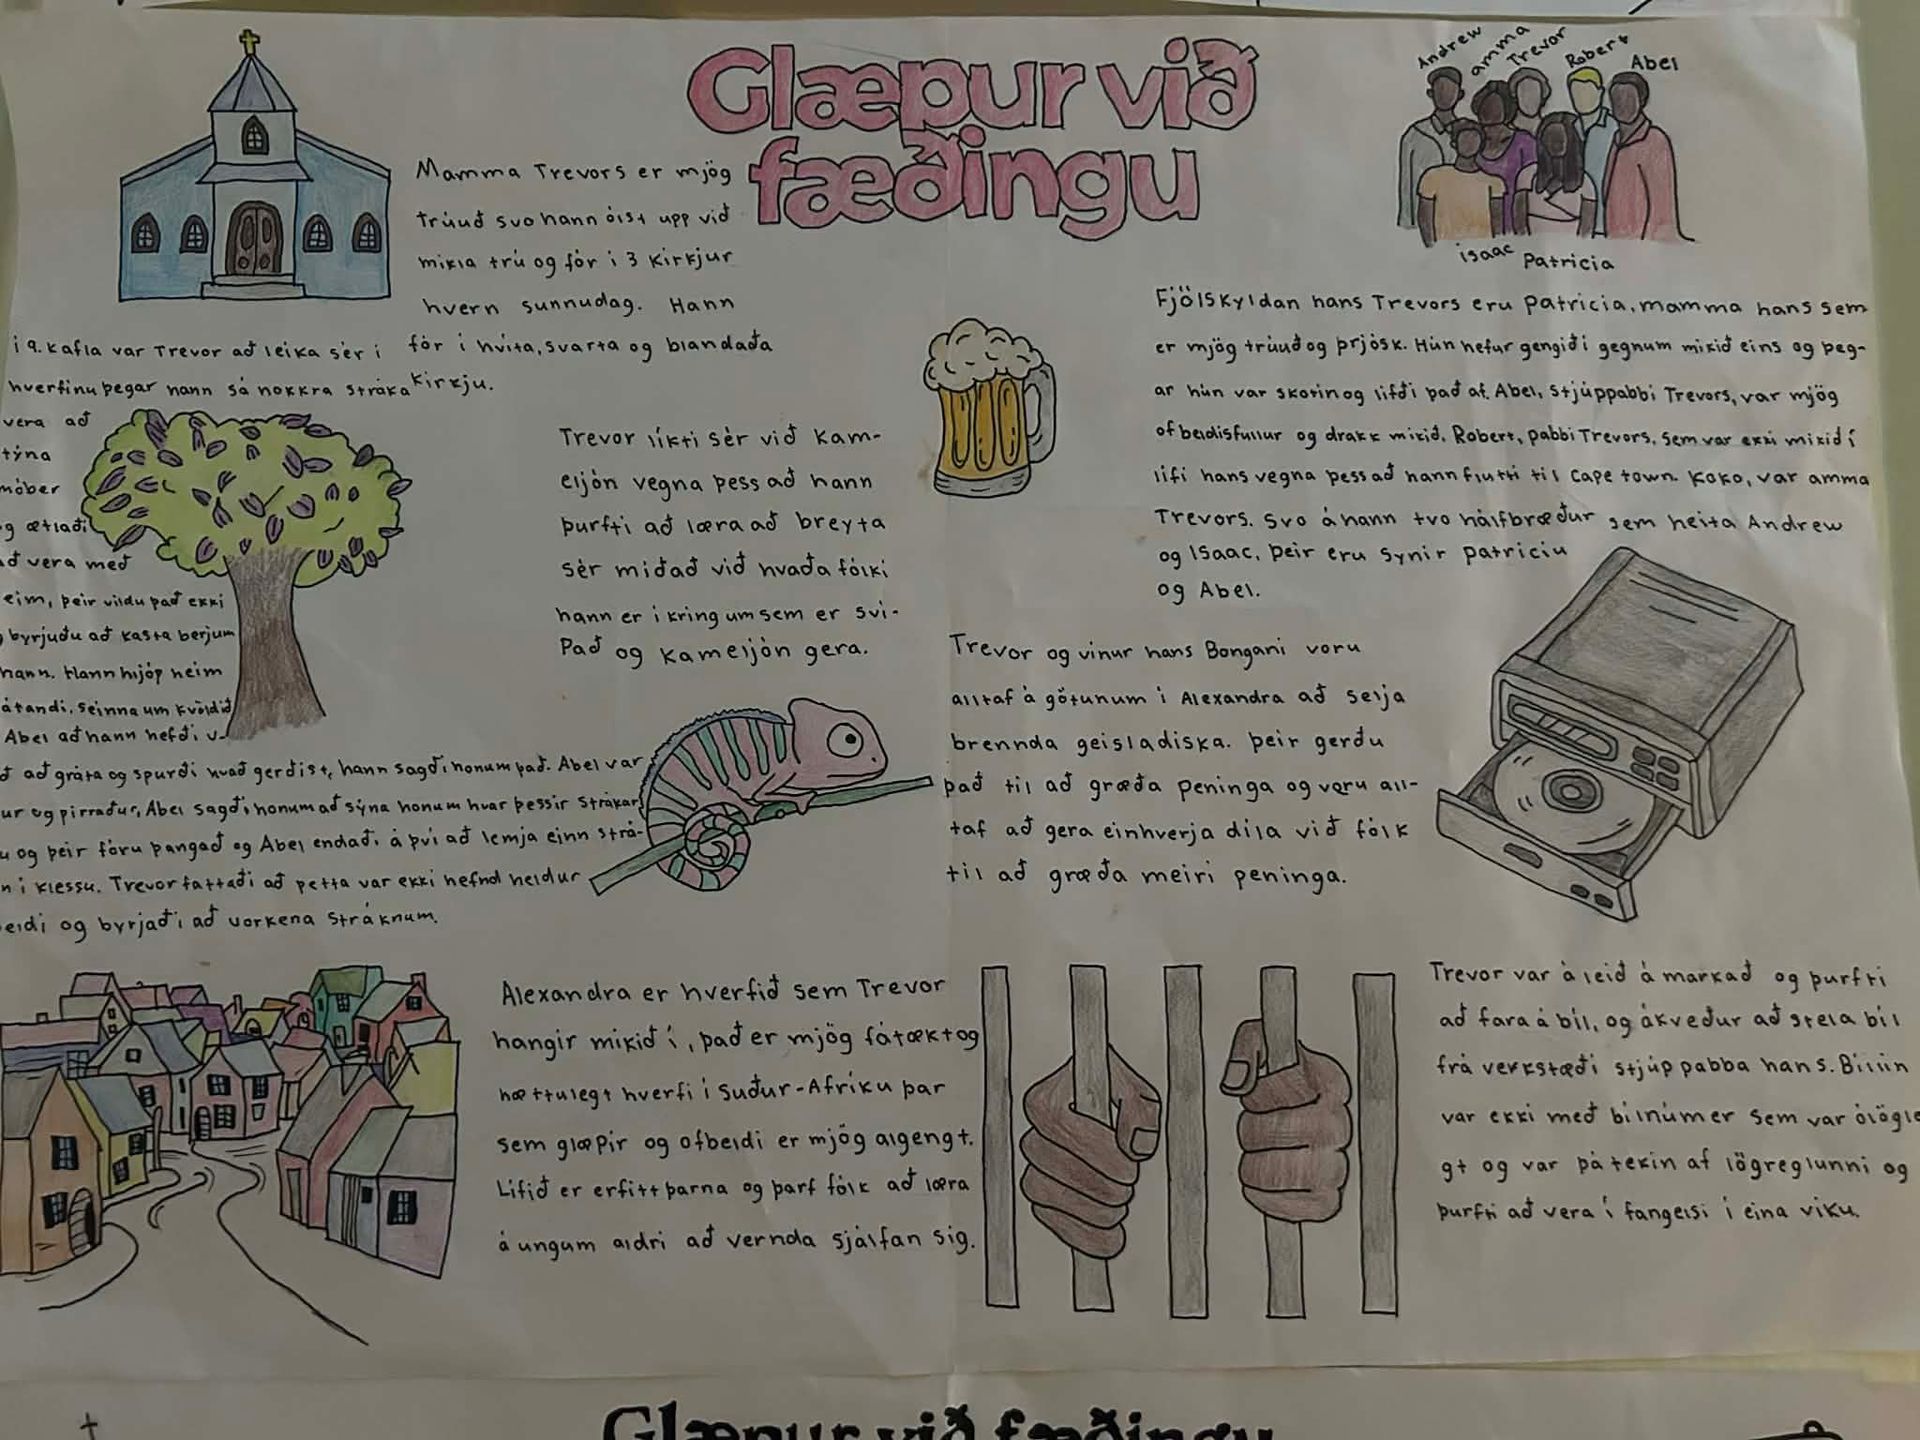 Glæpur við
fæðingu
Mamma Trevors er mjög
trúuð svo hann ólst upp við
mikla trú og fór í 3 kirkjur
hvern sunnudag. Hann
fór í hvíta, svarta og blandaða
kirkju.
Andrew
amma
Trevor
Robert
Abel
isaac
Patricia
Fjölskyldan hans Trevors eru Patricia, mamma hans sem
er mjög trúuð og þrjósk. Hún hefur gengið í gegnum mikið eins og þeg-
ar hún var skotin og lifði það af. Abel, stjúppabbi Trevors, var mjög
ofbeldisfullur og drakk mikið. Robert, pabbi Trevors, sem var ekki mikið í
lífi hans vegna þess að hann flutti til Cape town. Koko, var amma
Trevors. Svo á hann tvo hálfbræður sem heita Andrew
og Isaac, þeir eru synir Patriciu
og Abel.
í 9. kafla var Trevor að leika sér í
hverfinu þegar hann sá nokkra stráka
vera að
týna
móber
og ætlaði
að vera með
þeim, þeir vildu það ekki
og byrjuðu að kasta berjum
hann. Hann hljóp heim
átandi. Seinna um kvöldið
Abel að hann hefði v-
að gráta og spurði hvað gerðist, hann sagði honum það. Abel var
ur og pirraður, Abel sagði honum að sýna honum hvar þessir strákar
u og þeir fóru þangað og Abel endaði á því að lemja einn strá-
n í klessu. Trevor fattaði að þetta var ekki hefnd heldur
beldi og byrjaði að vorkena stráknum.
Trevor líkti sér við kam-
eljón vegna þess að hann
þurfti að læra að breyta
sér miðað við hvaða fólki
hann er í kring um sem er svi-
Það og kameljón gera.
Trevor og vinur hans Bongani voru
alltaf á götunum í Alexandra að selja
brennda geisladiska. Þeir gerðu
það til að græða peninga og voru all-
taf að gera einhverja díla við fólk
til að græða meiri peninga.
Alexandra er hverfið sem Trevor
hangir mikið í, það er mjög fátækt og
hættulegt hverfi í Suður-Afríku þar
sem glæpir og ofbeldi er mjög algengt.
Lífið er erfitt þarna og þarf fólk að læra
á ungum aldri að vernda sjálfan sig.
Trevor var á leið á markað og þurfti
að fara á bíl, og ákveður að stela bíl
frá verkstæði stjúp pabba hans. Bíllin
var ekki með bílnúmer sem var ólögle
gt og var þá tekin af lögreglunni og
þurfti að vera í fangelsi í eina viku.
Glæpur við fæðingu